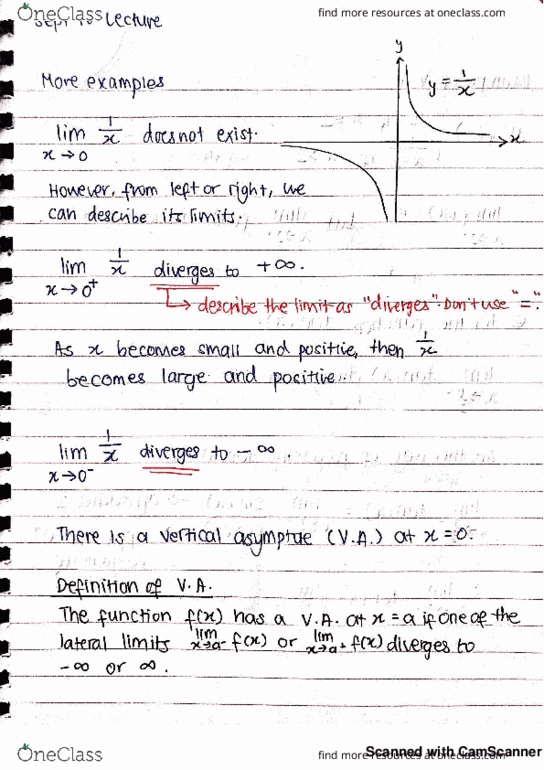 OneClass
find more resources at oneclass.com
Lecture
More examples
y
y = 1/x
x
lim 1/x does not exist.
x→0
However, from left or right, we
can describe its limits.
lim 1/x diverges to +∞.
x→0⁺
↳ describe the limit as "diverges". Don't use "=".
As x becomes small and positive, then 1/x
becomes large and positive.
lim 1/x diverges to -∞.
x→0⁻
There is a vertical asymptae (V.A.) at x=0.
Definition of V.A.
The function f(x) has a V.A. at x=a if one of the
lateral limits lim x→a⁻ f(x) or lim x→a⁺ f(x) diverges to
-∞ or ∞.
OneClass
find more resources at oneclass.com
Scanned with CamScanner